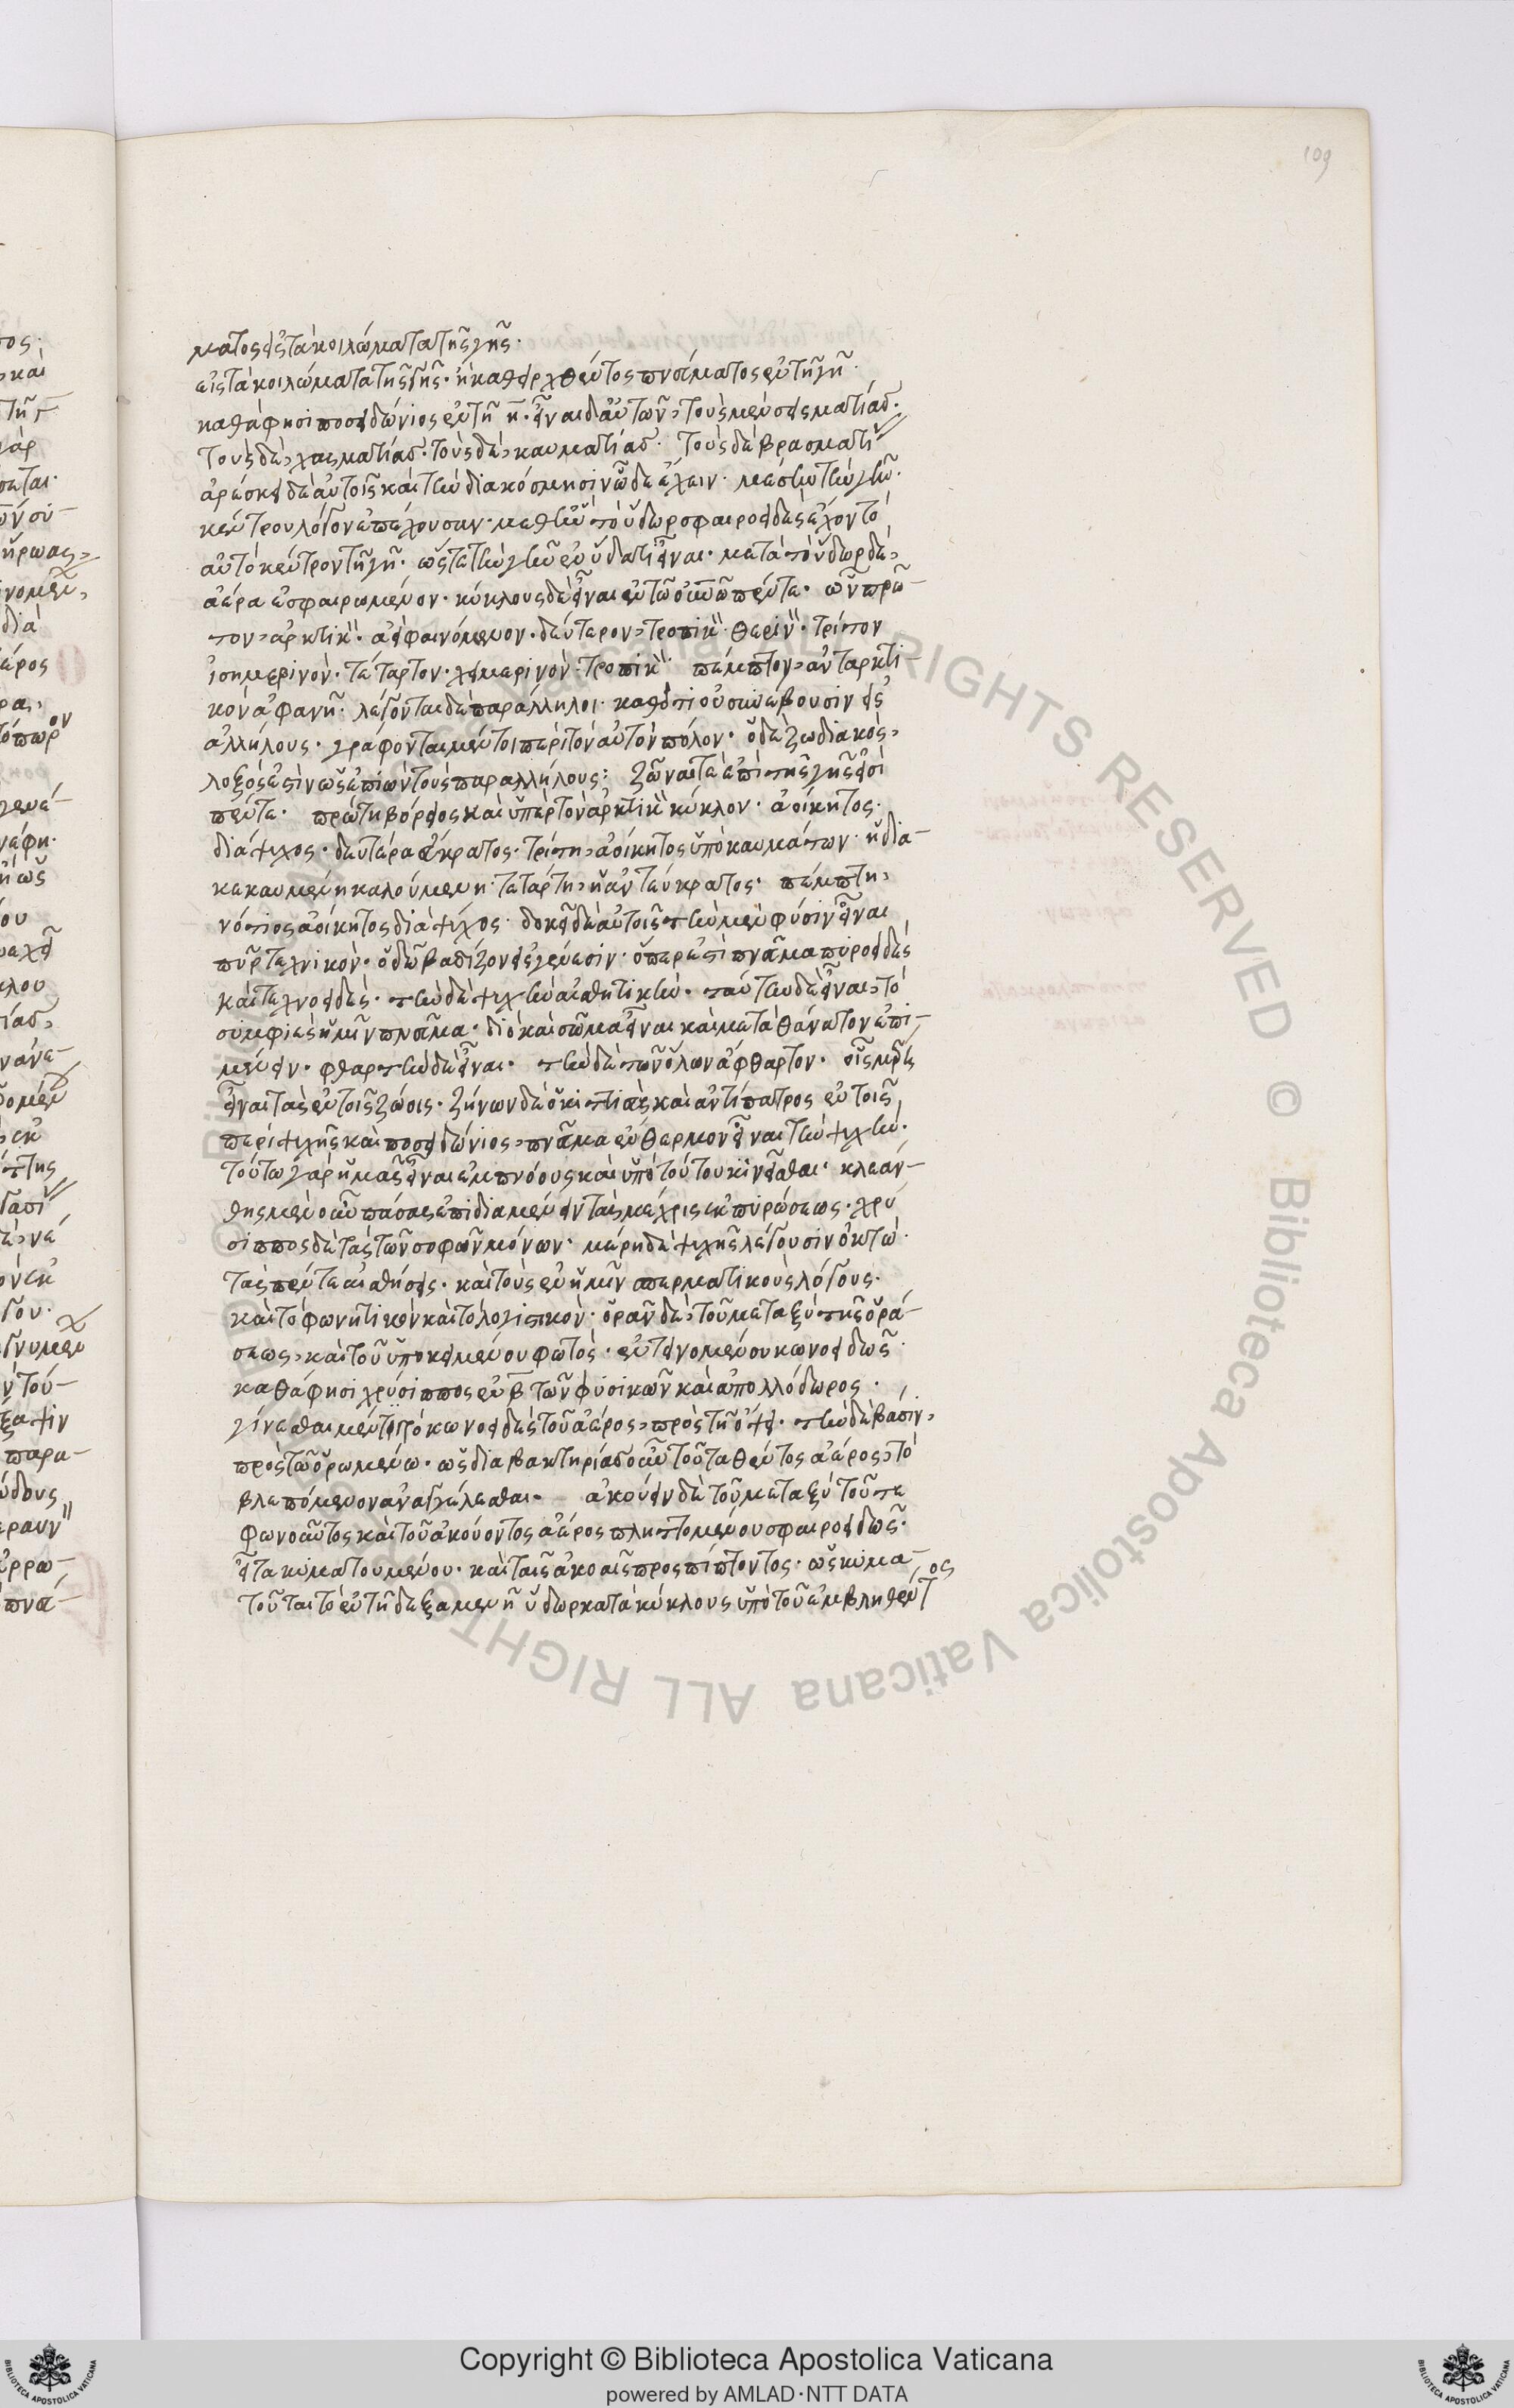 109
ματος εἰς τὰ κοιλώματα τῆς γῆς·
εἰς τὰ κοιλώματα τῆς γῆς· ἢ καθειρχθέντος πνεύματος ἐν τῆ γῆ·
καθά φησι ποσειδώνιος ἐν τῆ η̄· εἶναι δ' αὐτῶν, τοὺς μὲν σεισματίας·
τοὺς δὲ, χασματίας· τοὺς δὲ, καυματίας· τοὺς δὲ βρασματί
ἀρέσκει δὲ αὐτοῖς καὶ τὴν διακόσμησιν ὧδε ἔχειν· μέσην τὴν γῆν·
κέντρου λόγον ἐπέχουσαν· μεθ' ἣν τὸ ὕδωρ σφαιροειδὲς ἔχον τὸ
αὐτὸ κέντρον τῆ γῆ· ὥστε τὴν γῆν ἐν ὕδατι εἶναι· μετὰ τὸ ὕδωρ δὲ,
ἀέρα ἐσφαιρωμένον· κύκλους δὲ εἶναι ἐν τῶ οὐνῶ πέντε· ὧν πρῶ-
τον, ἀρκτικ· ἀεὶ φαινόμενον· δεύτερον, τροπικ· θεριν· τρίτον
ἰσημερινὸν· τέταρτον· χειμερινὸν τροπικ· πέμπτον, ἀνταρκτι-
κὸν ἀφανῆ· λέγονται δὲ παράλληλοι· καθότι οὐ συνεύουσιν εἰς
ἀλλήλους· γράφονται μέντοι περὶ τὸν αὐτὸν πόλον· ὁ δὲ ζωδιακὸς,
λοξός ἐστιν ὡς ἐπιὼν τοὺς παραλλήλους: ζῶναί τε ἐπὶ τῆς γῆς εἰσὶ
πέντε· πρώτη βόρειος καὶ ὑπὲρ τὸν ἀρκτικ κύκλον· ἀοίκητος·
διὰ ψῦχος· δευτέρα εὔκρατος· τρίτη, ἀοίκητος ὑπὸ καυμάτων· ἡ δια-
κεκαυμένη καλουμένη· τετάρτη, ἡ ἀντεύκρατος· πέμπτη,
νότιος ἀοίκητος διὰ ψύχος· δοκεῖ δὲ αὐτοῖς τὴν μὲν φύσιν εἶναι
πῦρ τεχνικὸν· ὁδῶ βαδίζον εἰς γένεσιν· ὅπερ ἐστὶ πνεῦμα πυροειδὲς
καὶ τεχνοειδὲς· τὴν δὲ ψυχὴν αἰσθητικὴν· ταύτην δὲ εἶναι, τὸ
συμφυὲς ἡμῖν πνεῦμα· διὸ καὶ σῶμα εἶναι καὶ μετὰ θάνατον ἐπι-
μένειν· φθαρτὴν δὲ εἶναι· τὴν δὲ τῶν ὅλων ἄφθαρτον· ἧς μέρη
εἶναι τὰς ἐν τοῖς ζώοις· ζήνων δὲ ὁ κιτιεὺς καὶ ἀντίπατρος ἐν τοῖς
περὶ ψυχῆς καὶ ποσειδώνιος, πνεῦμα ἔνθερμον εἶναι τὴν ψυχὴν·
τούτω γὰρ ἡμᾶς εἶναι ἐμπνόους καὶ ὑπὸ τούτου κινεῖσθαι· κλεάν-
θης μὲν οὖν πάσας ἐπιδιαμένειν τὰς μέχρις ἐκπυρώσεως· χρύ
σιππος δὲ τὰς τῶν σοφῶν μόνων· μέρη δὲ ψυχῆς λέγουσιν ὀκτὼ·
τὰς πέντε αἰσθήσεις· καὶ τοὺς ἐν ἡμῖν σπερματικοὺς λόγους·
καὶ τὸ φωνητικὸν καὶ τὸ λογιστικὸν· ὁρᾶν δὲ, τοῦ μεταξὺ τῆς ὁρά-
σεως, καὶ τοῦ ὑποκειμένου φωτὸς· ἐντεινομένου κωνοειδῶς·
καθά φησι χρύσιππος ἐν β̄ τῶν φυσικῶν καὶ ἀπολλόδωρος·
γίνεσθαι μέντοι τὸ κωνοειδὲς τοῦ ἀέρος, πρὸς τῆ ὄψει· τὴν δὲ βάσιν,
πρὸς τῶ ὁρωμένω· ὡς διὰ βακτηρίας οὖν τοῦ ταθέντος ἀέρος, τὸ
βλεπόμενον ἀναγγέλεσθαι· ἀκούειν δὲ τοῦ μεταξὺ τοῦ τε
φωνοῦντος καὶ τοῦ ἀκούοντος ἀέρος πληττομένου σφαιροειδῶς·
εἶτα κυματουμένου· καὶ ταῖς ἀκοαῖς προσπίπτοντος· ὡς κυμα-
τοῦται τὸ ἐν τῆ δεξαμενῆ ὕδωρ κατὰ κύκλους ὑπὸ τοῦ ἐμβληθέντος
Copyright © Biblioteca Apostolica Vaticana
powered by AMLAD·NTT DATA